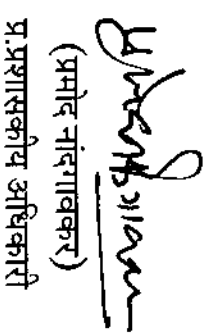 (प्रमोद नांदगावकर)
प्र.प्रशासकीय अधिकारी